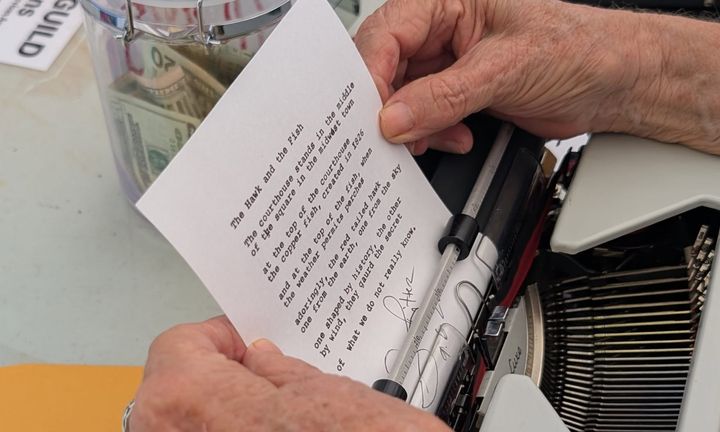 GUILD
The Hawk and the Fish
The courthouse stands in the middle
of the square in the midwest town
at the top of the courthouse
the copper fish, created in 1826
and at the top of the fish, when
the weather permits perches
adoringly, the red tailed hawk
one from the earth, one from the sky
one shaped by history, the other
by wind, they gaurd the secret
of what we do not really know.